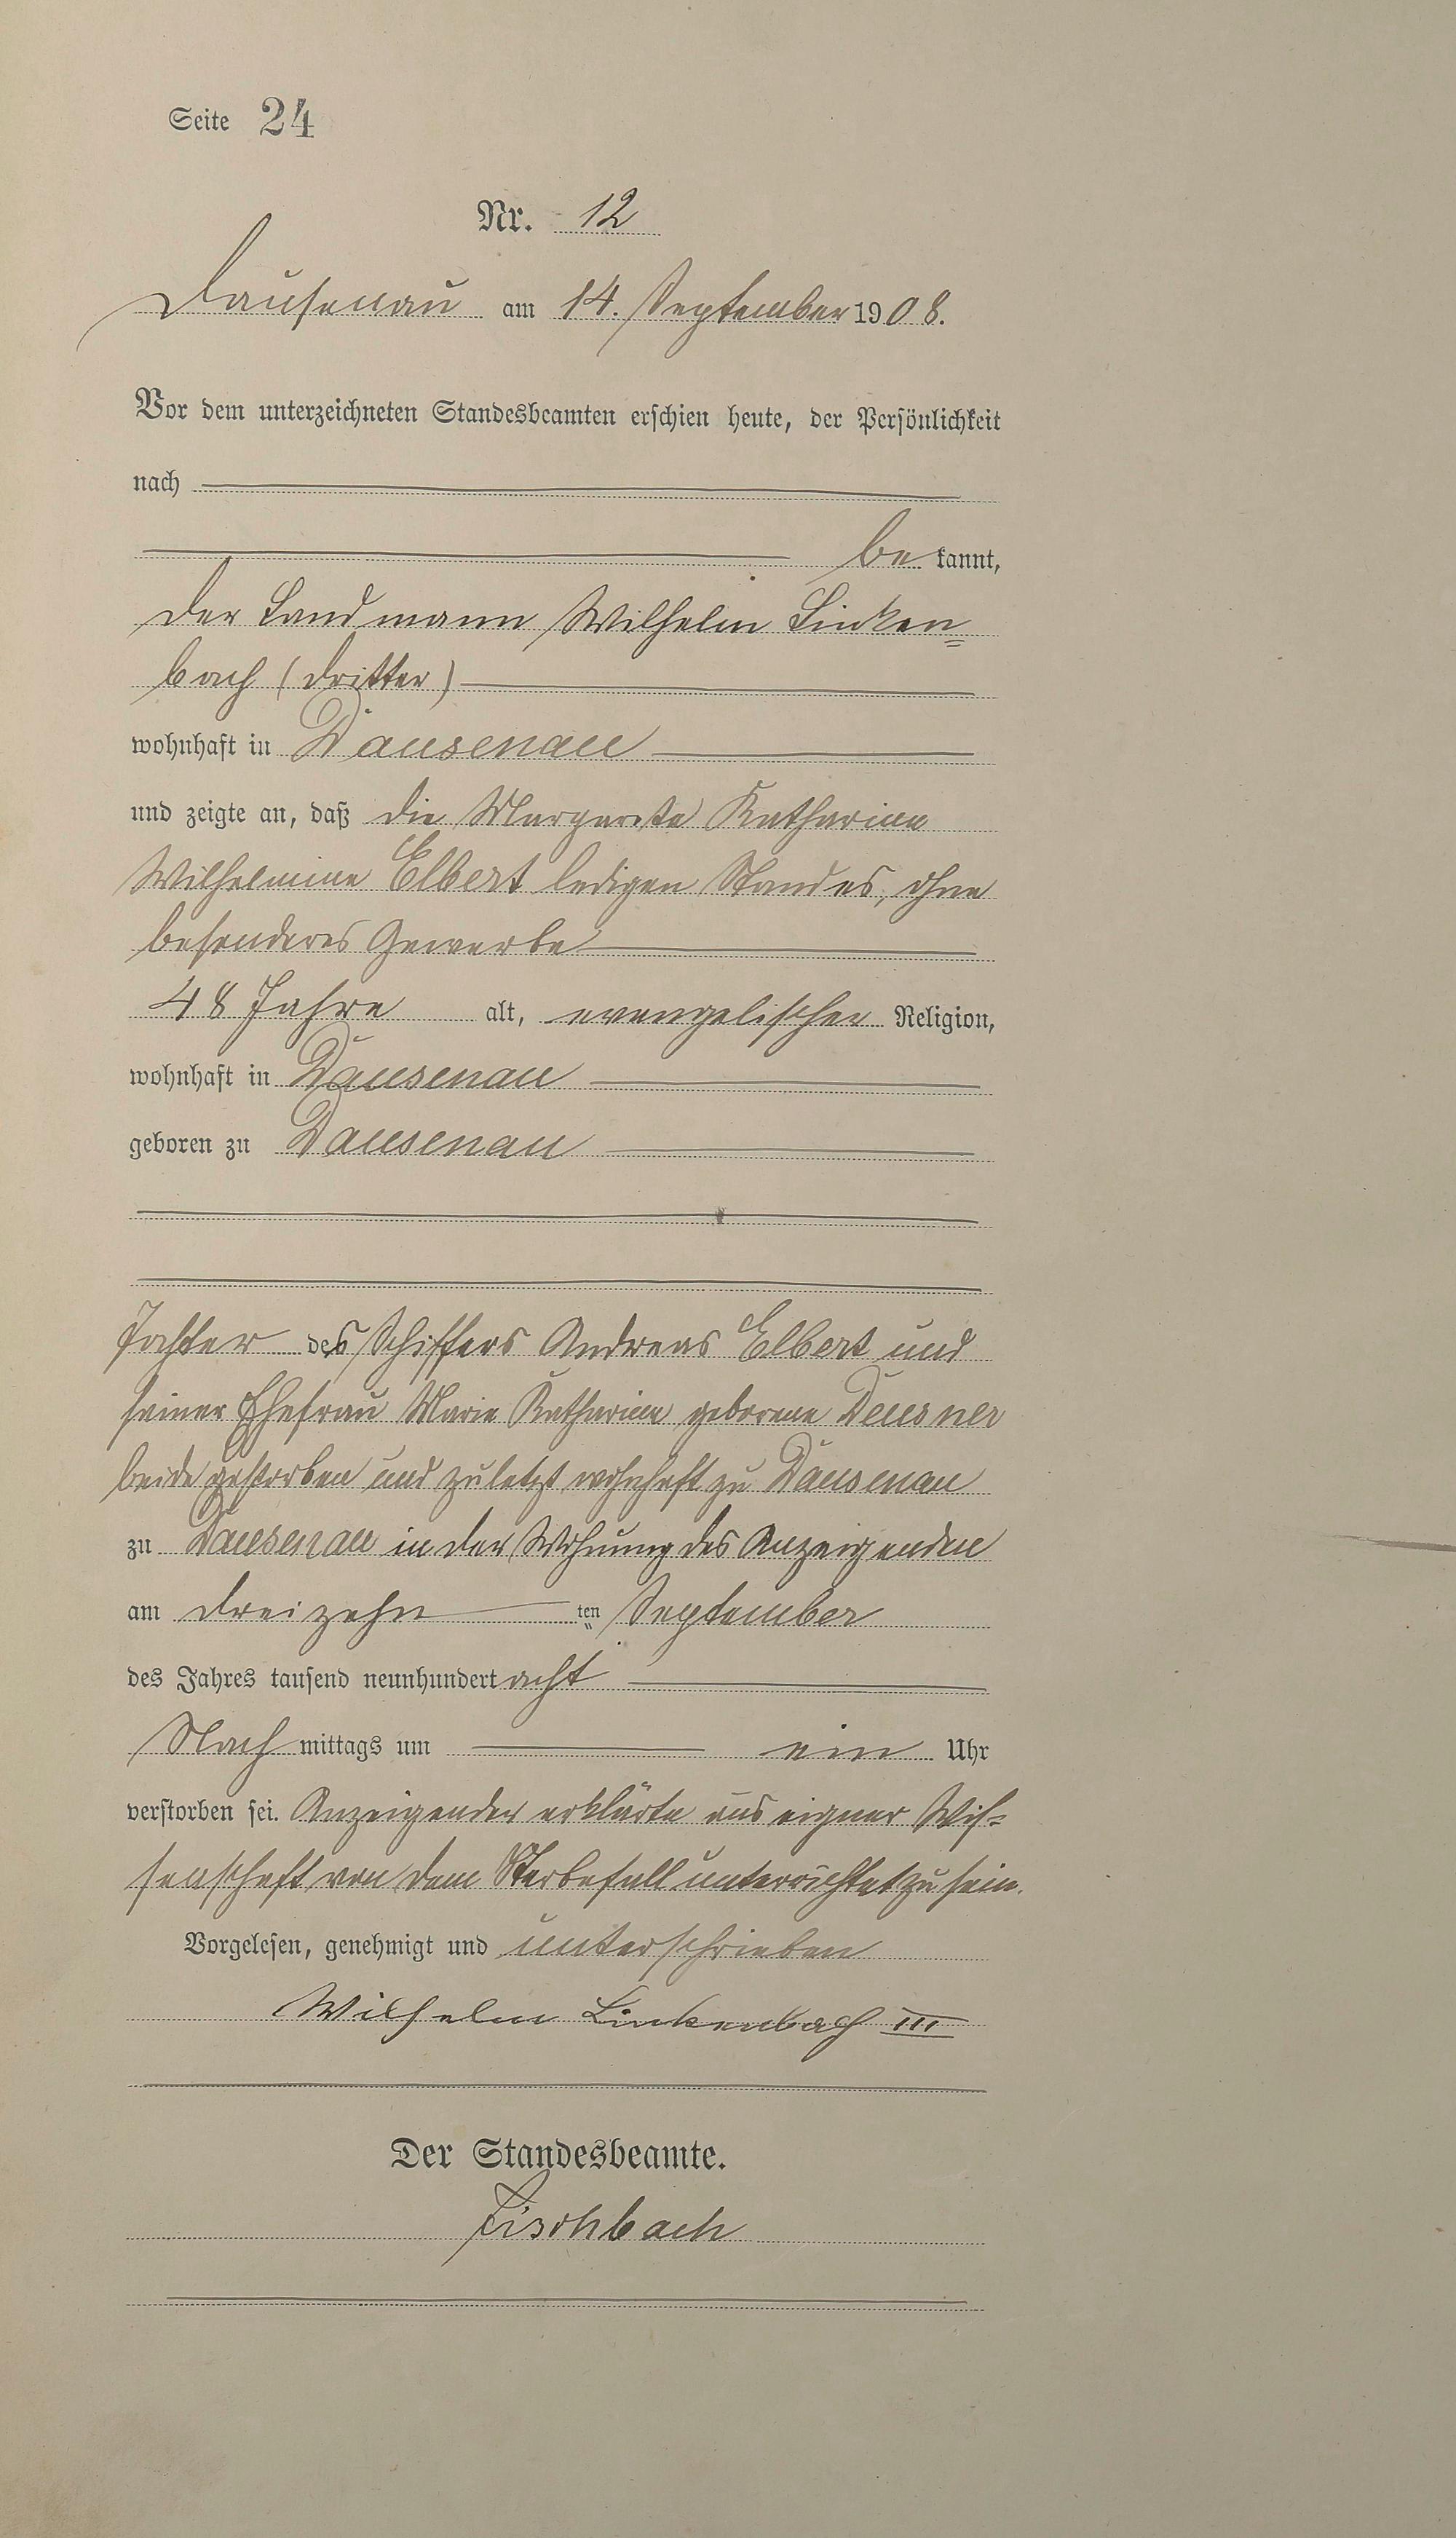 Seite 24
Nr. 12
Dausenau am 14. September 1908.
Vor dem unterzeichneten Standesbeamten erschien heute, der Persönlichkeit
nach
be kannt,
der Landmann Wilhelm Linken=
bach (dritter)
wohnhaft in Dausenau
und zeigte an, daß die Margarete Katharine
Wilhelmine Elbert ledigen Standes, ohne
besonderes Gewerbe
48 Jahre alt, evangelischer Religion,
wohnhaft in Dausenau
geboren zu Dausenau
Tochter des Schiffers Andreas Elbert und
seiner Ehefrau Marie Katharine geborene Deusner
beide gestorben und zuletzt wohnhaft zu Dausenau
zu Dausenau in der Wohnung des Anzeigenden
am dreizehn ten September
des Jahres tausend neunhundert acht
Nach mittags um ein Uhr
verstorben sei. Anzeigender erklärte aus eigner Wis=
senschaft von dem Sterbefall unterrichtet zu sein.
Vorgelesen, genehmigt und unterschrieben
Wilhelm Linkenbach III
Der Standesbeamte.
Fischbach